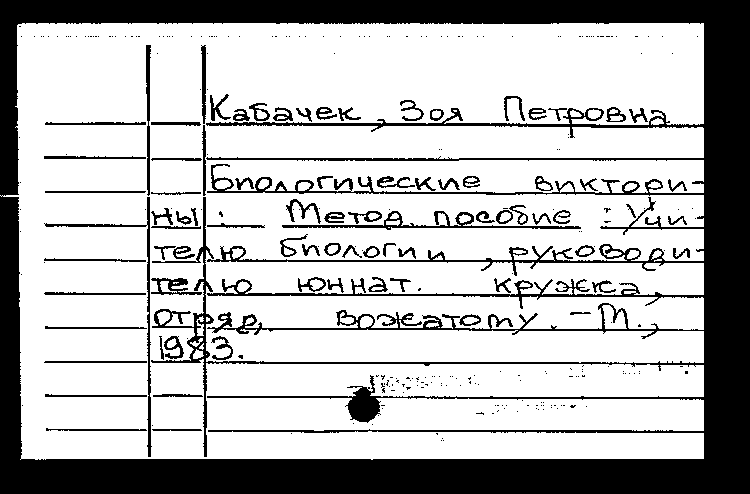 Кабачек, Зоя Петровна
Биологические виктори-
ны : Метод. пособие : Учи-
телю биологии, руководи-
телю юннат. кружка,
отряд. вожатому. - М.,
1983.